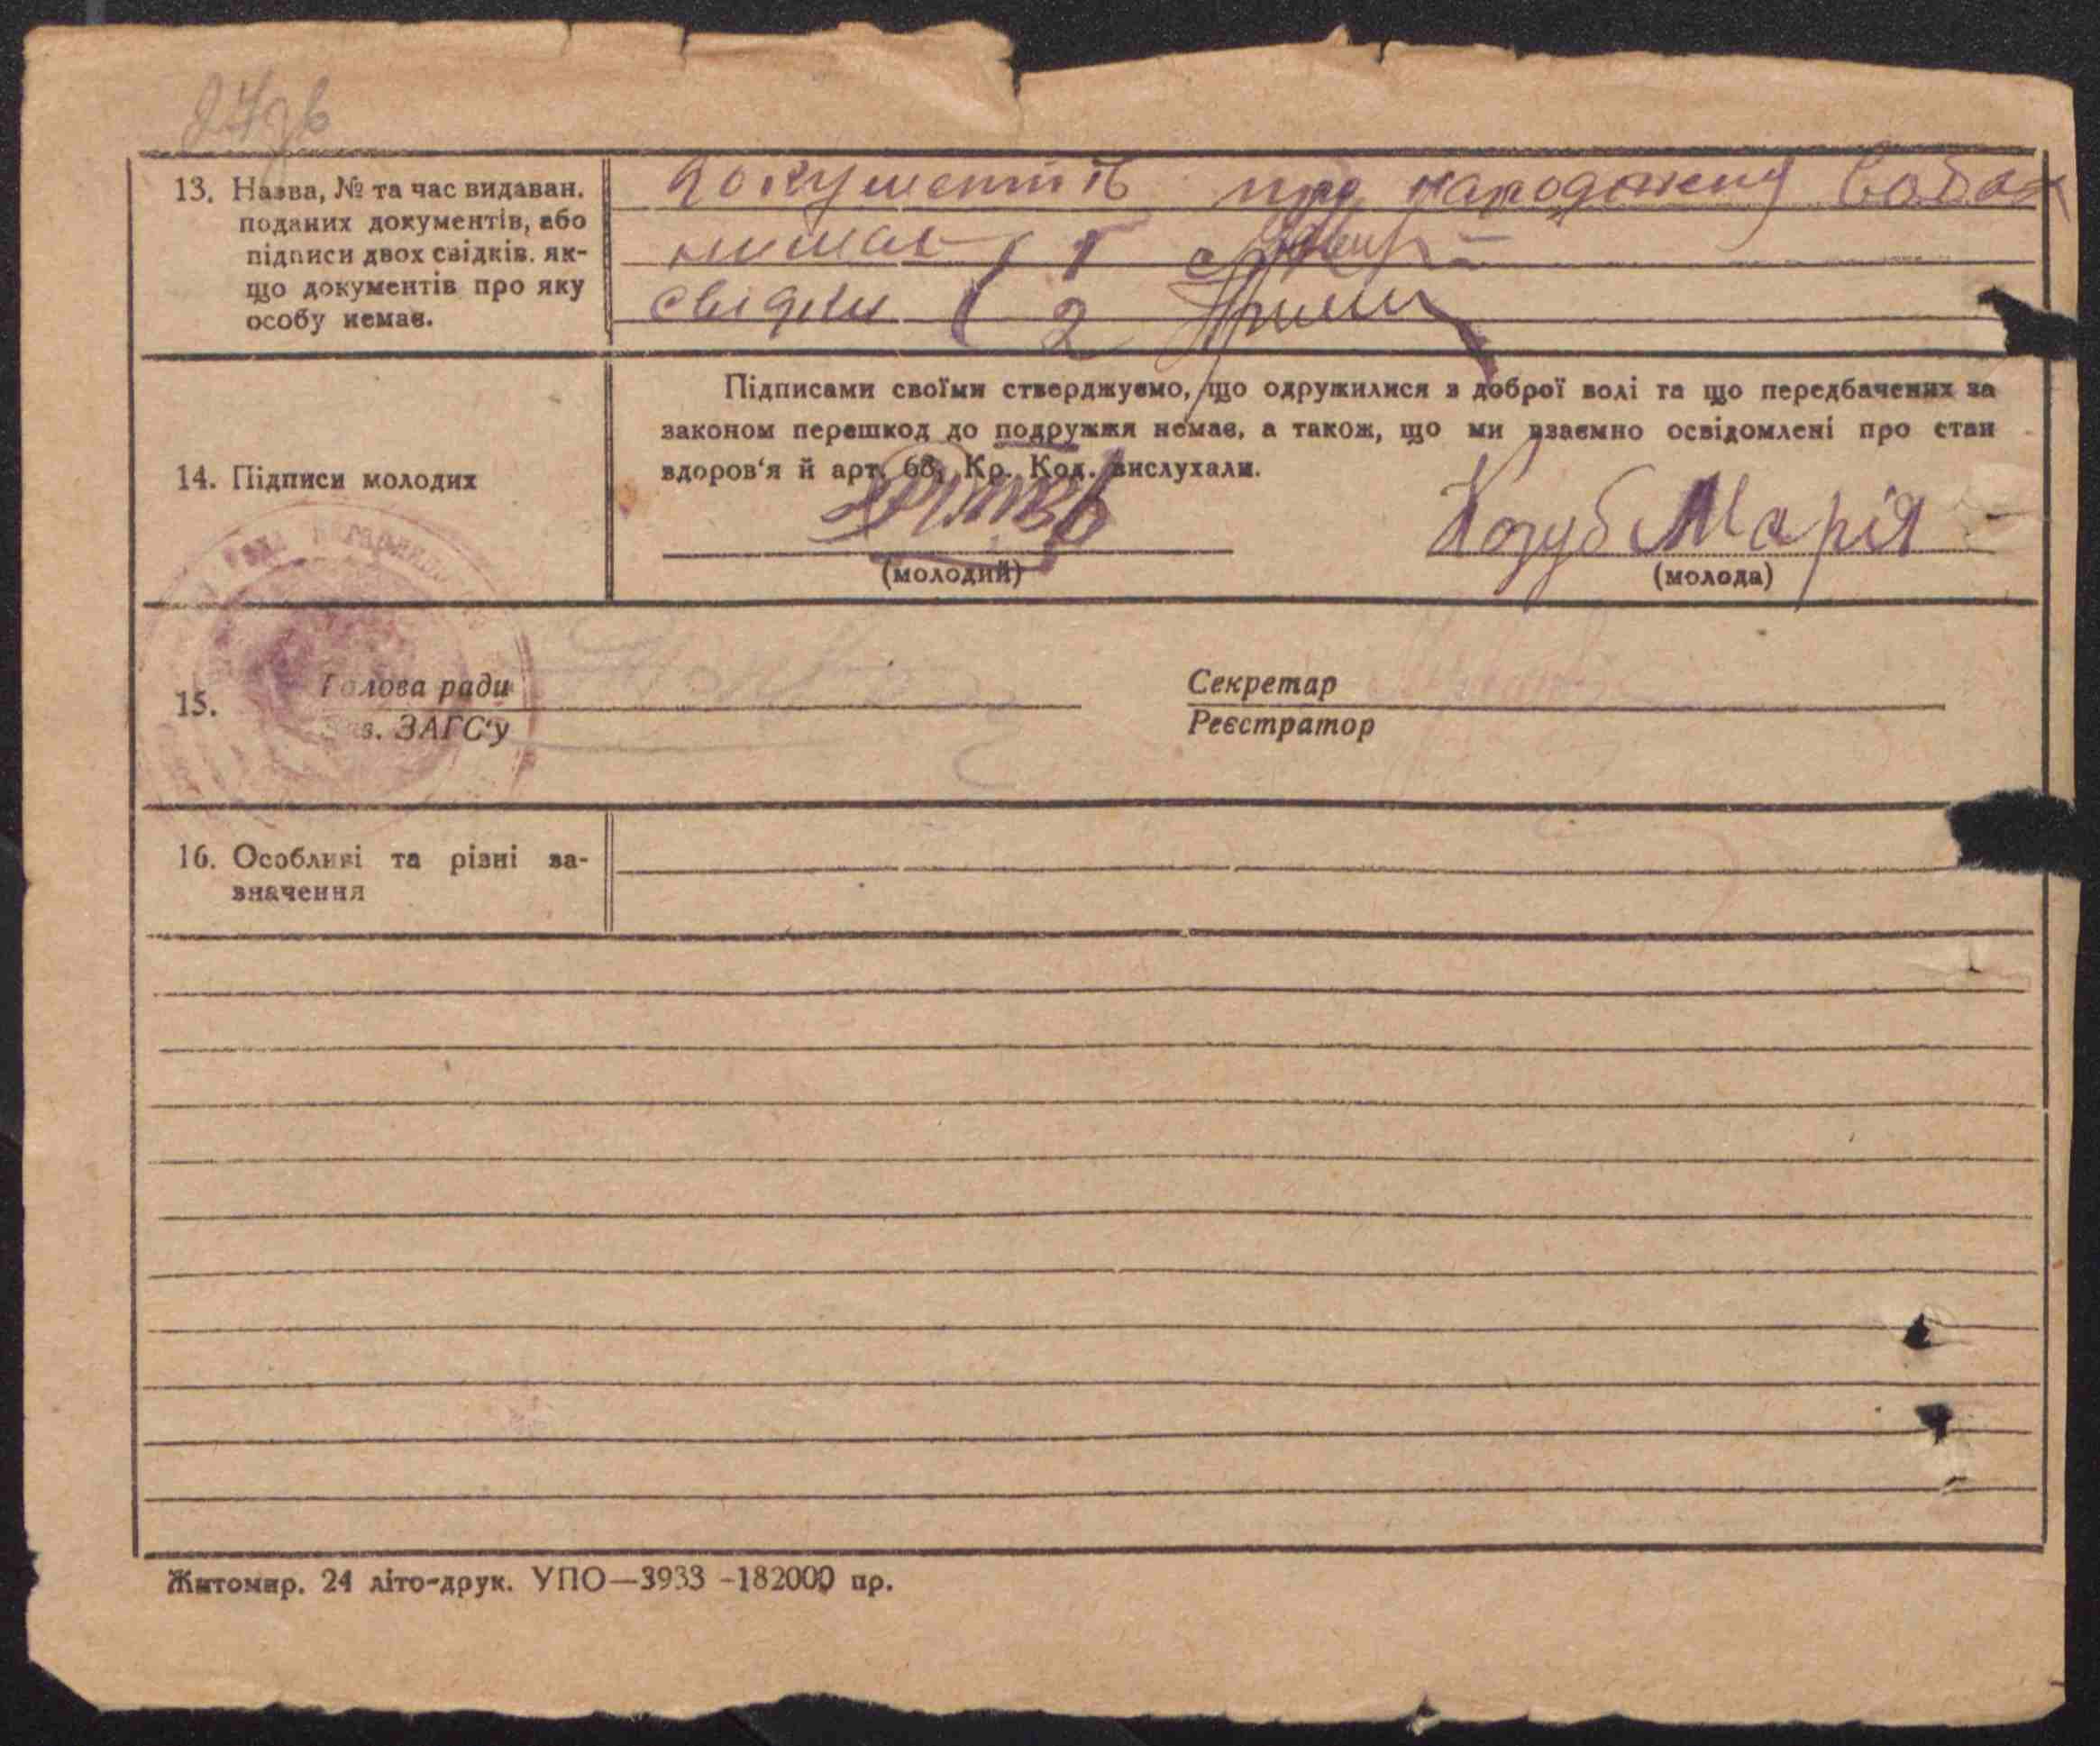 13. Назва, № та час видаван.
поданих документів, або
підписи двох свідків. як-
що документів про яку
особу немає.
Документів про народженя
немає 1
свідки 2
Підписами своїми стверджуємо, що одружилися з доброї волі та що передбачених за
законом перешкод до подружжя немає, а також, що ми взаємно освідомлені про стан
здоров'я й арт. 68, Кр. Код. вислухали.
14. Підписи молодих
Козуб Марія
(молодий) (молода)
15. Голова ради Секретар
Зав. ЗАГС'у Реєстратор
16. Особливі та різні за-
значення
Житомир. 24 літо-друк. УПО—3933 -182000 пр.